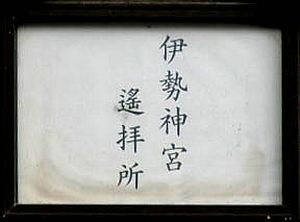 伊勢神宮
遙拝所